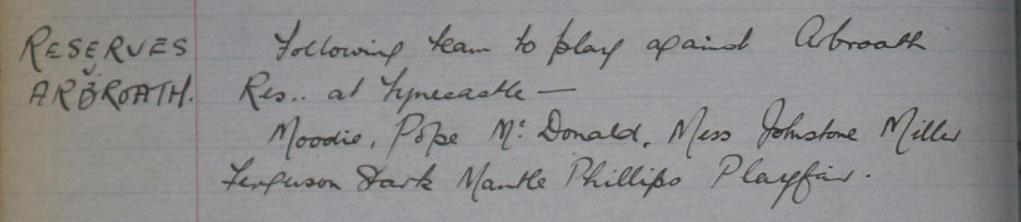 RESERVES Following team to play against Arbroath
v
ARBROATH. Res.. at Tynecastle —
Moodie, Pope Mc Donald, Mess Johnstone Miller
Ferguson Stark Mantle Phillips Playfair.